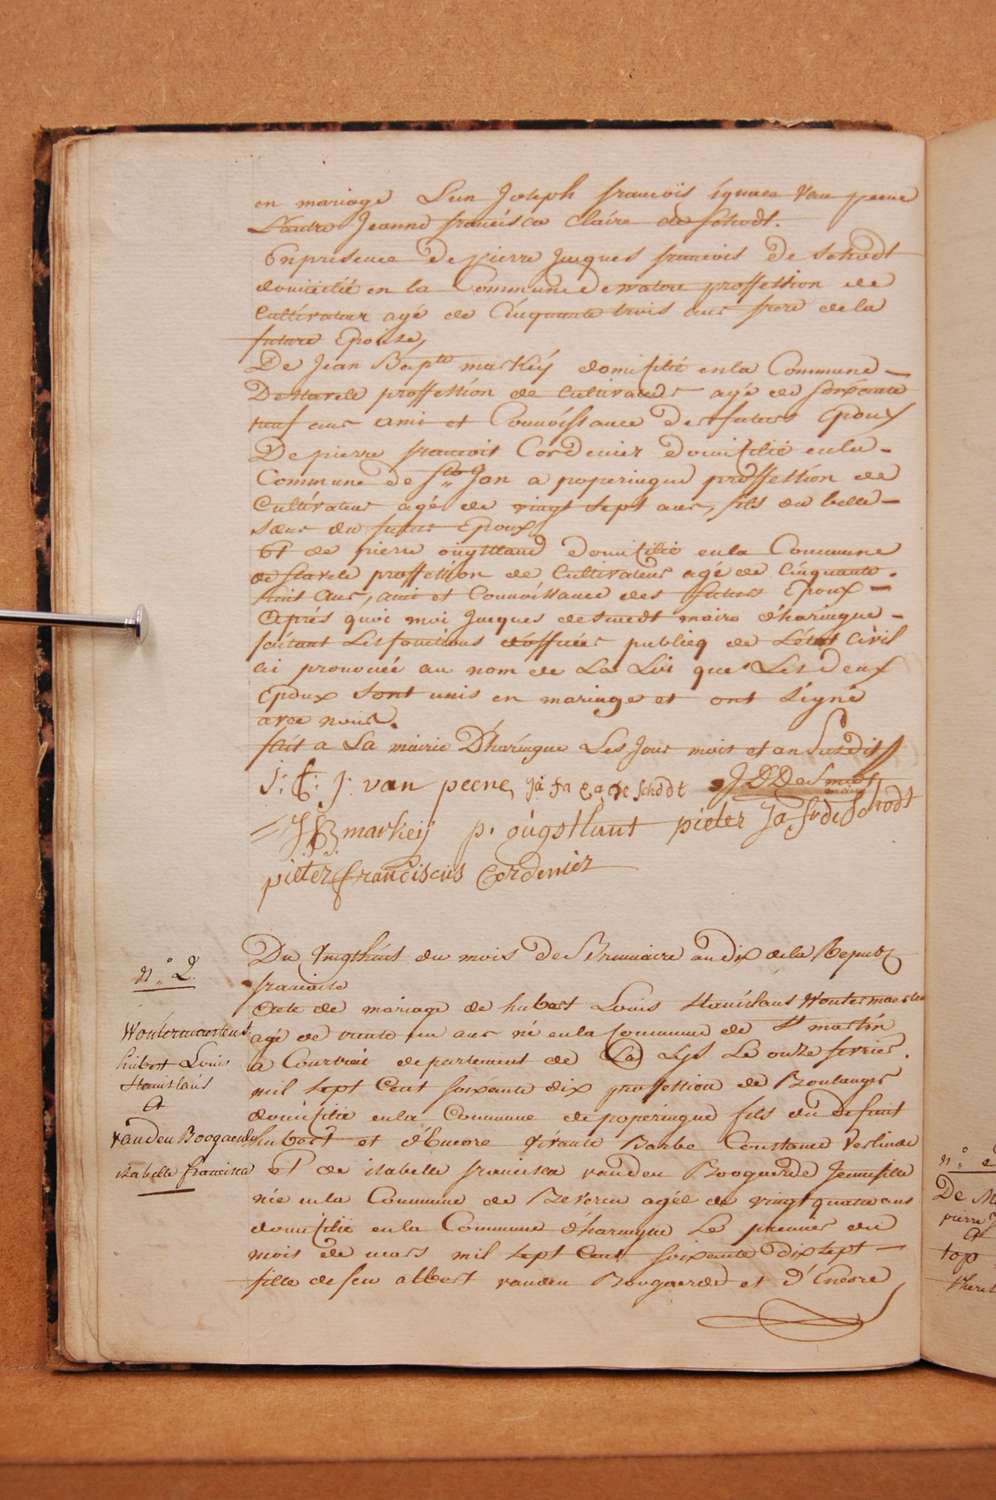 en mariage L'un Joseph francois ignace Van peene
L'autre Jeanne francisca Claire de Schodt.
En présence de pierre Jacques francois De Schodt
domicilié en la Commune de watou proffession de
Cultivateur agé de Cinquante trois ans frere de la
future Epouse,
De Jean Bapte markey domicilié en la Commune
De Stavele proffession de Cultivateur agé de soixante
neuf ans ami et Connoissance des futurs Epoux
De pierre francois Cordenier domicilié en la
Commune de St Jan a poperingue proffession de
Cultivateur agé de vingt sept ans, fils du belle
soeur du futur Epoux
Et de pierre ougstland domicilié en la Commune
de Stavele proffession de Cultivateur agé de Cinquante
trois ans, ami et Connoissance des futurs Epoux
Après quoi moi Jacques desmedt maire d'haringue
faisant les fonctions d'officier publicq de L'état Civil
ai prononcé au nom de La Loi que Les deux
Epoux sont unis en mariage et ont signé
avec nous.
fait a La mairie D'haringue Les Jour mois et an susdit
j: f: j: van peene, ja fa de schodt J D DeSmedt
maire
J B markeij p. ougstlant pieter Ja fr de Schodt
pieter franciscus Cordenier
n.° 2.
Du vingthuit du mois de Brumaire an dix de la Republ
francaise
Woutermaertens
hubert Louis
Stanislaus
a
vanden Boogaerde
isabelle francisca
Acte de mariage de hubert Louis Stanislaus Woutermaertens
agé de trente un ans né en la Commune de St martin
a Courtrai departement de La Lys Le onze fevrier
mil sept Cent soixante dix proffession de Boulanger
domicilié en la Commune de poperingue fils du defunt
hubert et d'Encore vivante Barbe Constance Verlinde
Et de isabelle francisca vanden Boogaerde Jeunefille
née en la Commune de Beveren agée de vingt quatre ans
domicilié en la Commune d'haringue Le premier du
mois de mars mil sept Cent soixante dix sept
fille de feu albert vanden Boogaerde et d'Encore
n.°
De M
pierre
a
top